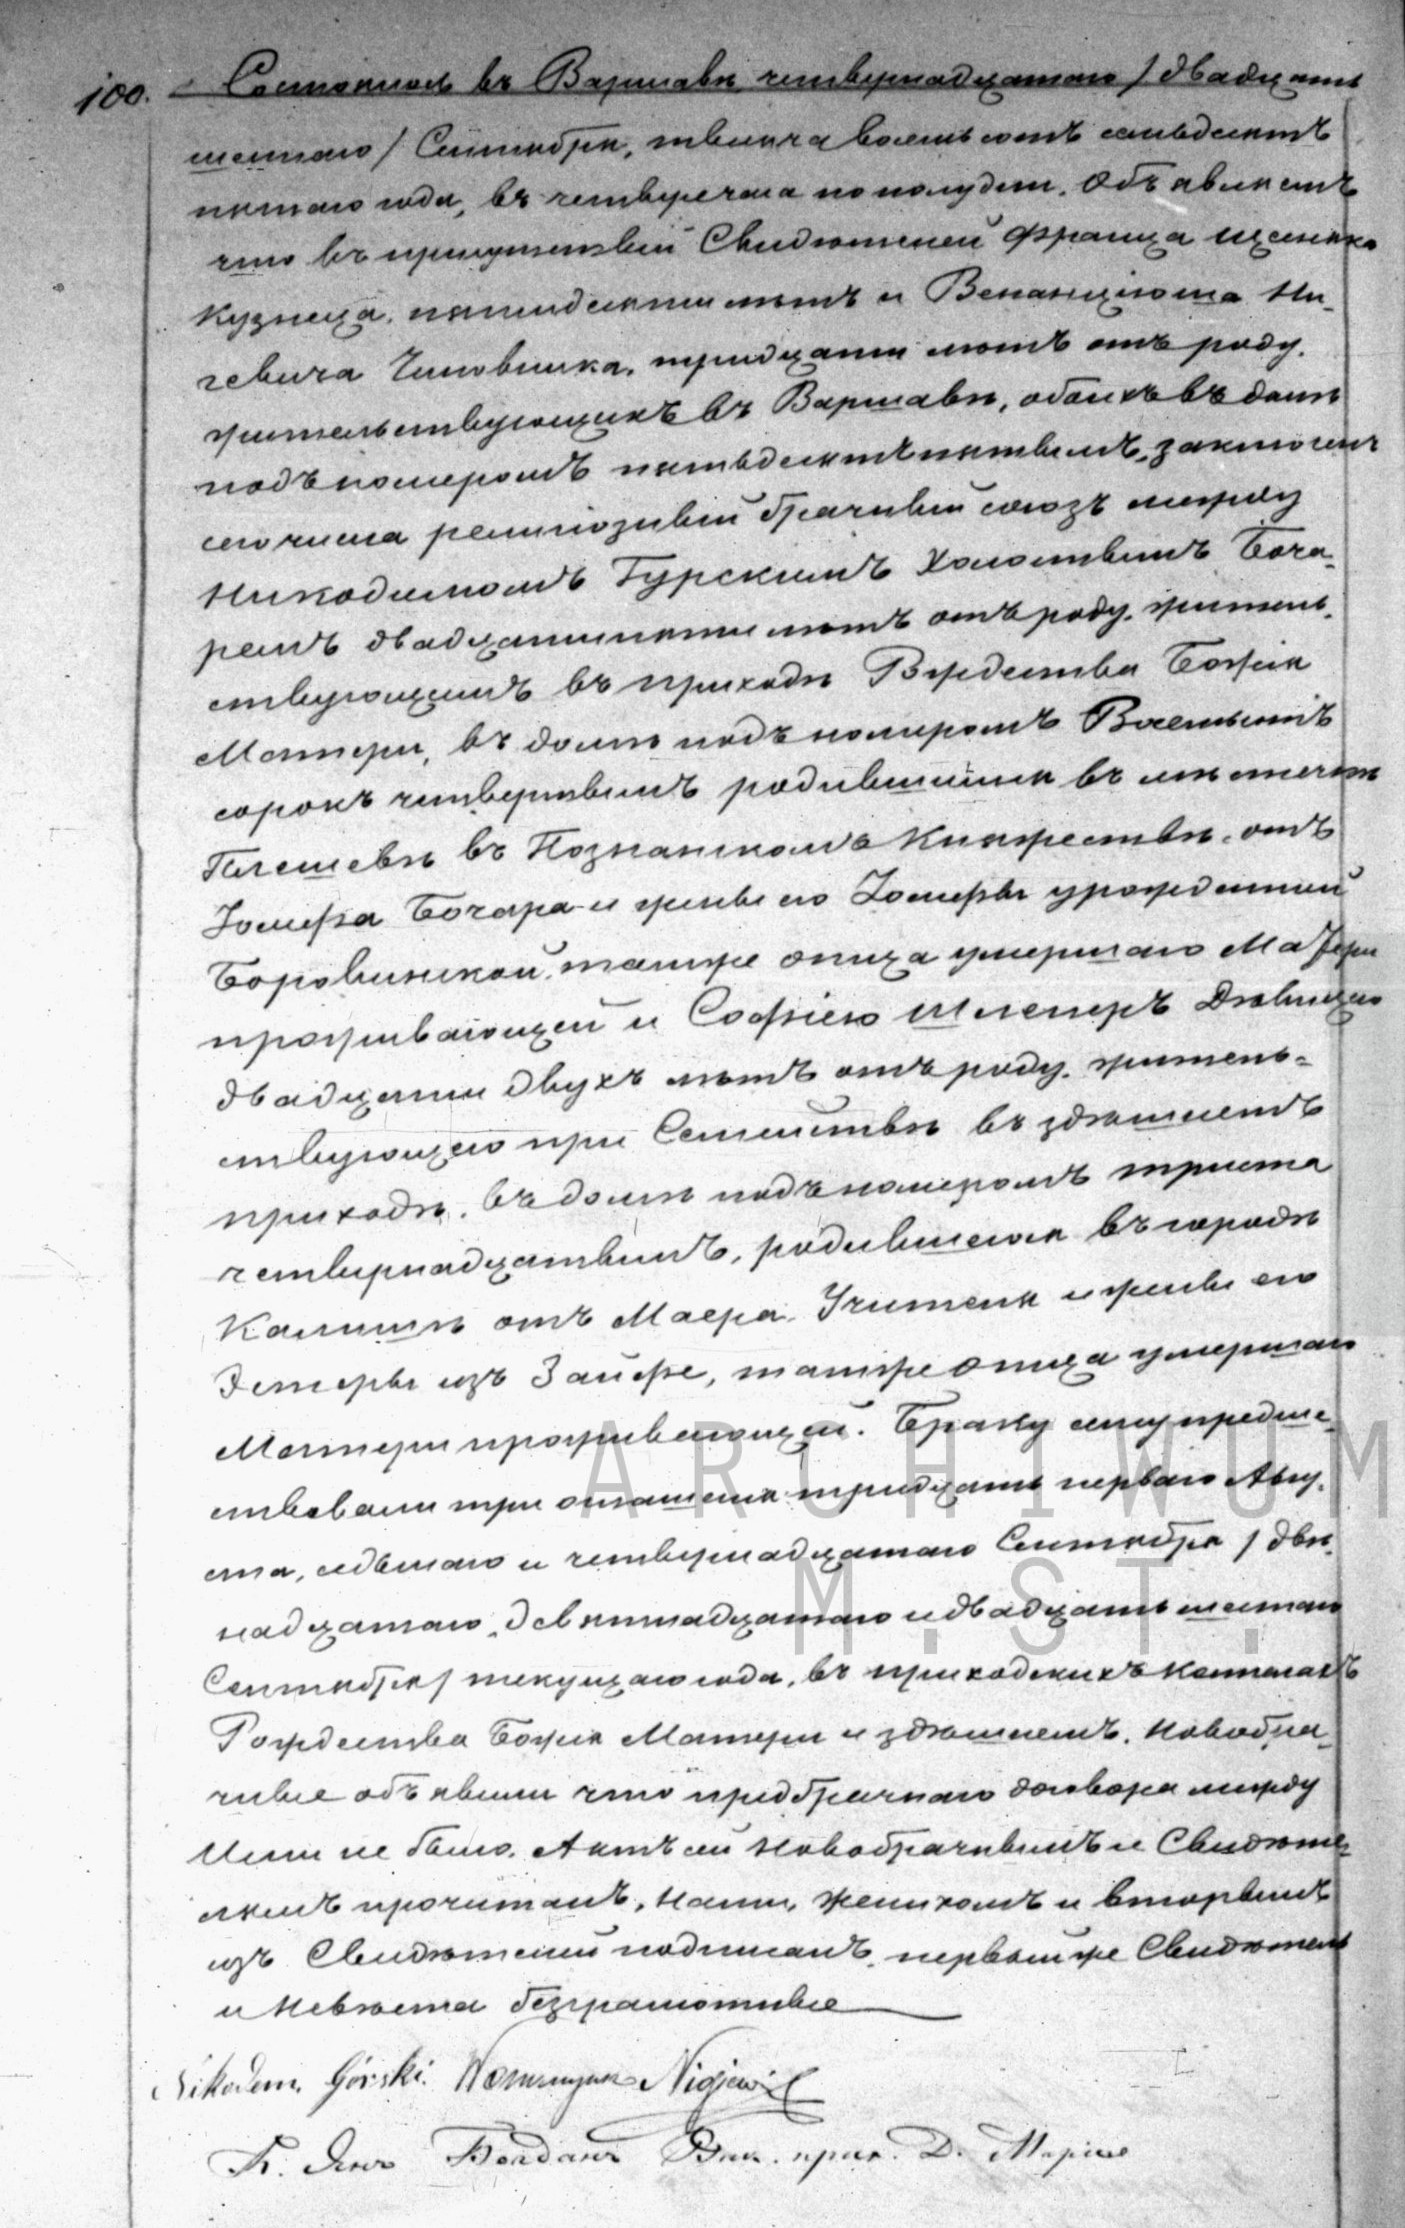 100. Состоялось въ Варшавѣ четырнадцатаго / двадцать
шестаго / Сентября, тысяча восемьсотъ семьдесятъ
пятаго года, въ четыре часа по полудни. Объявляемъ
что въ присутствіи Свидѣтелей Франца
Кузнеца, пятидесяти лѣтъ и Венанціюша Ни-
гевича Чиновника, тридцати лѣтъ отъ роду,
жительствующихъ въ Варшавѣ, обоихъ въ домѣ
подъ номеромъ пятьдесятъ пятымъ, заключенъ
сего числа религіозный брачный союзъ между
Никодимомъ Гурскимъ Холостымъ Боча-
ремъ двадцати пяти лѣтъ отъ роду, житель-
ствующимъ въ приходѣ Рождества Божія
Матери, въ домѣ подъ номеромъ Восемьсотъ
сорокъ четвертымъ родившимся въ мѣстечкѣ
Плешевѣ въ Познанскомъ Княжествѣ, отъ
Іосифа Бочара и жены его Іосифы урожденной
Боровинской, тамже отца умершаго Матери
проживающей и Софіею Шлезеръ Дѣвицею
двадцати двухъ лѣтъ отъ роду, житель-
ствующею при Семействѣ въ здѣшнемъ
приходѣ, въ домѣ подъ номеромъ триста
четырнадцатымъ, родившеюся въ городѣ
Калишѣ отъ Маера, Учителя и жены его
Эстеры изъ Зайфе, тамже отца умершаго
Матери проживающей. Браку сему предше-
ствовали три оглашенія тридцать перваго Авгу-
ста, седьмаго и четырнадцатаго Сентября / двѣ-
надцатаго, девятнадцатаго и двадцать шестаго
Сентября / текущаго года, въ приходскихъ костелахъ
Рождества Божія Матери и здѣшнемъ. Новобра-
чные объявили что предбрачнаго договора между
Ними не было. Актъ сей Новобрачнымъ и Свидѣте-
лямъ прочитанъ, Нами, Женихомъ и вторымъ
изъ Свидѣтелей подписанъ, первый же Свидѣтель
и Невѣста безграмотные
Nikodem Górski. Nigiewicz
К. Янъ Богданъ Вик. прих. Д. Маріи
ARCHIWUM
M. ST.